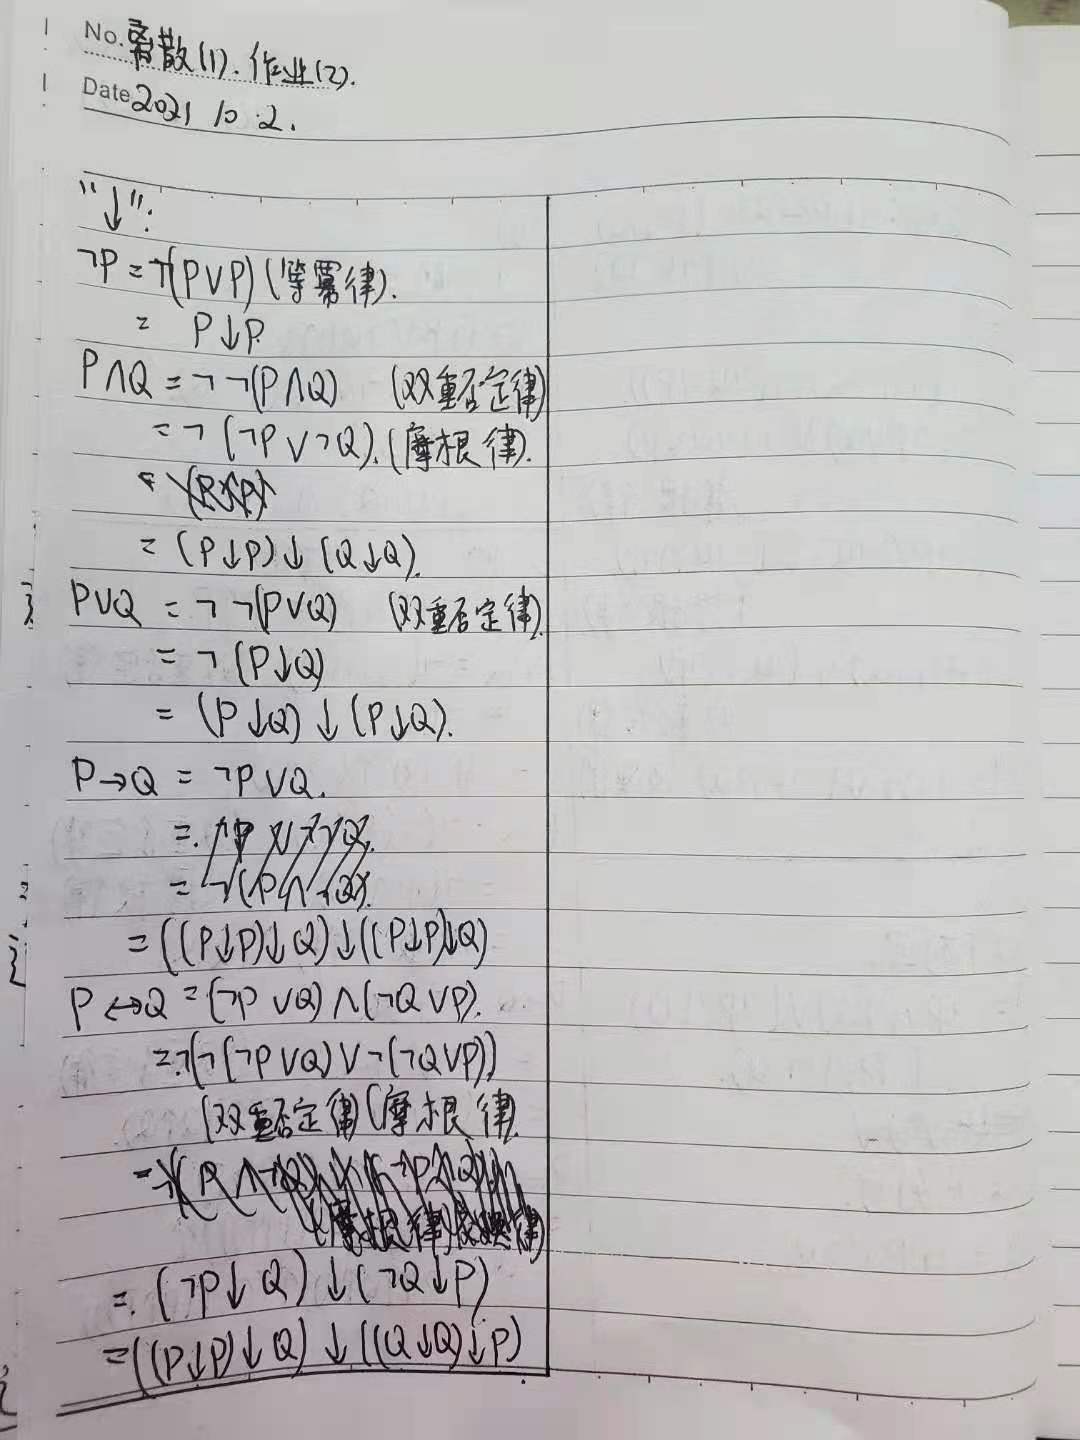 No. 离散(1). 作业(2).
Date 2021 10.2.
"↓":
¬P = ¬(P∨P) (等幂律).
= P↓P.
P∧Q = ¬¬(P∧Q) (双重否定律)
= ¬(¬P∨¬Q). (摩根律).
= (P↓P)↓(Q↓Q).
P∨Q = ¬¬(P∨Q) (双重否定律).
= ¬(P↓Q)
= (P↓Q)↓(P↓Q).
P→Q = ¬P∨Q.
= ((P↓P)↓Q)↓((P↓P)↓Q)
P↔Q = (¬P∨Q)∧(¬Q∨P).
= ¬(¬(¬P∨Q)∨¬(¬Q∨P))
(双重否定律)(摩根律).
= (¬P↓Q)↓(¬Q↓P)
= ((P↓P)↓Q)↓((Q↓Q)↓P)